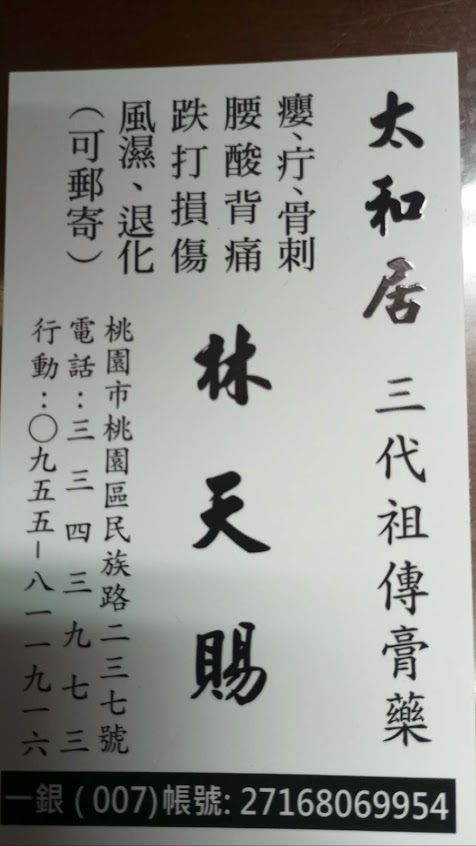 太和居 三代祖傳膏藥
癭、疔、骨刺
腰酸背痛
跌打損傷
風濕、退化
（可郵寄）
林天賜
桃園市桃園區民族路二三七號
電話：三三四三九七三
行動：〇九五五－八一一九一六
一銀（007)帳號: 27168069954